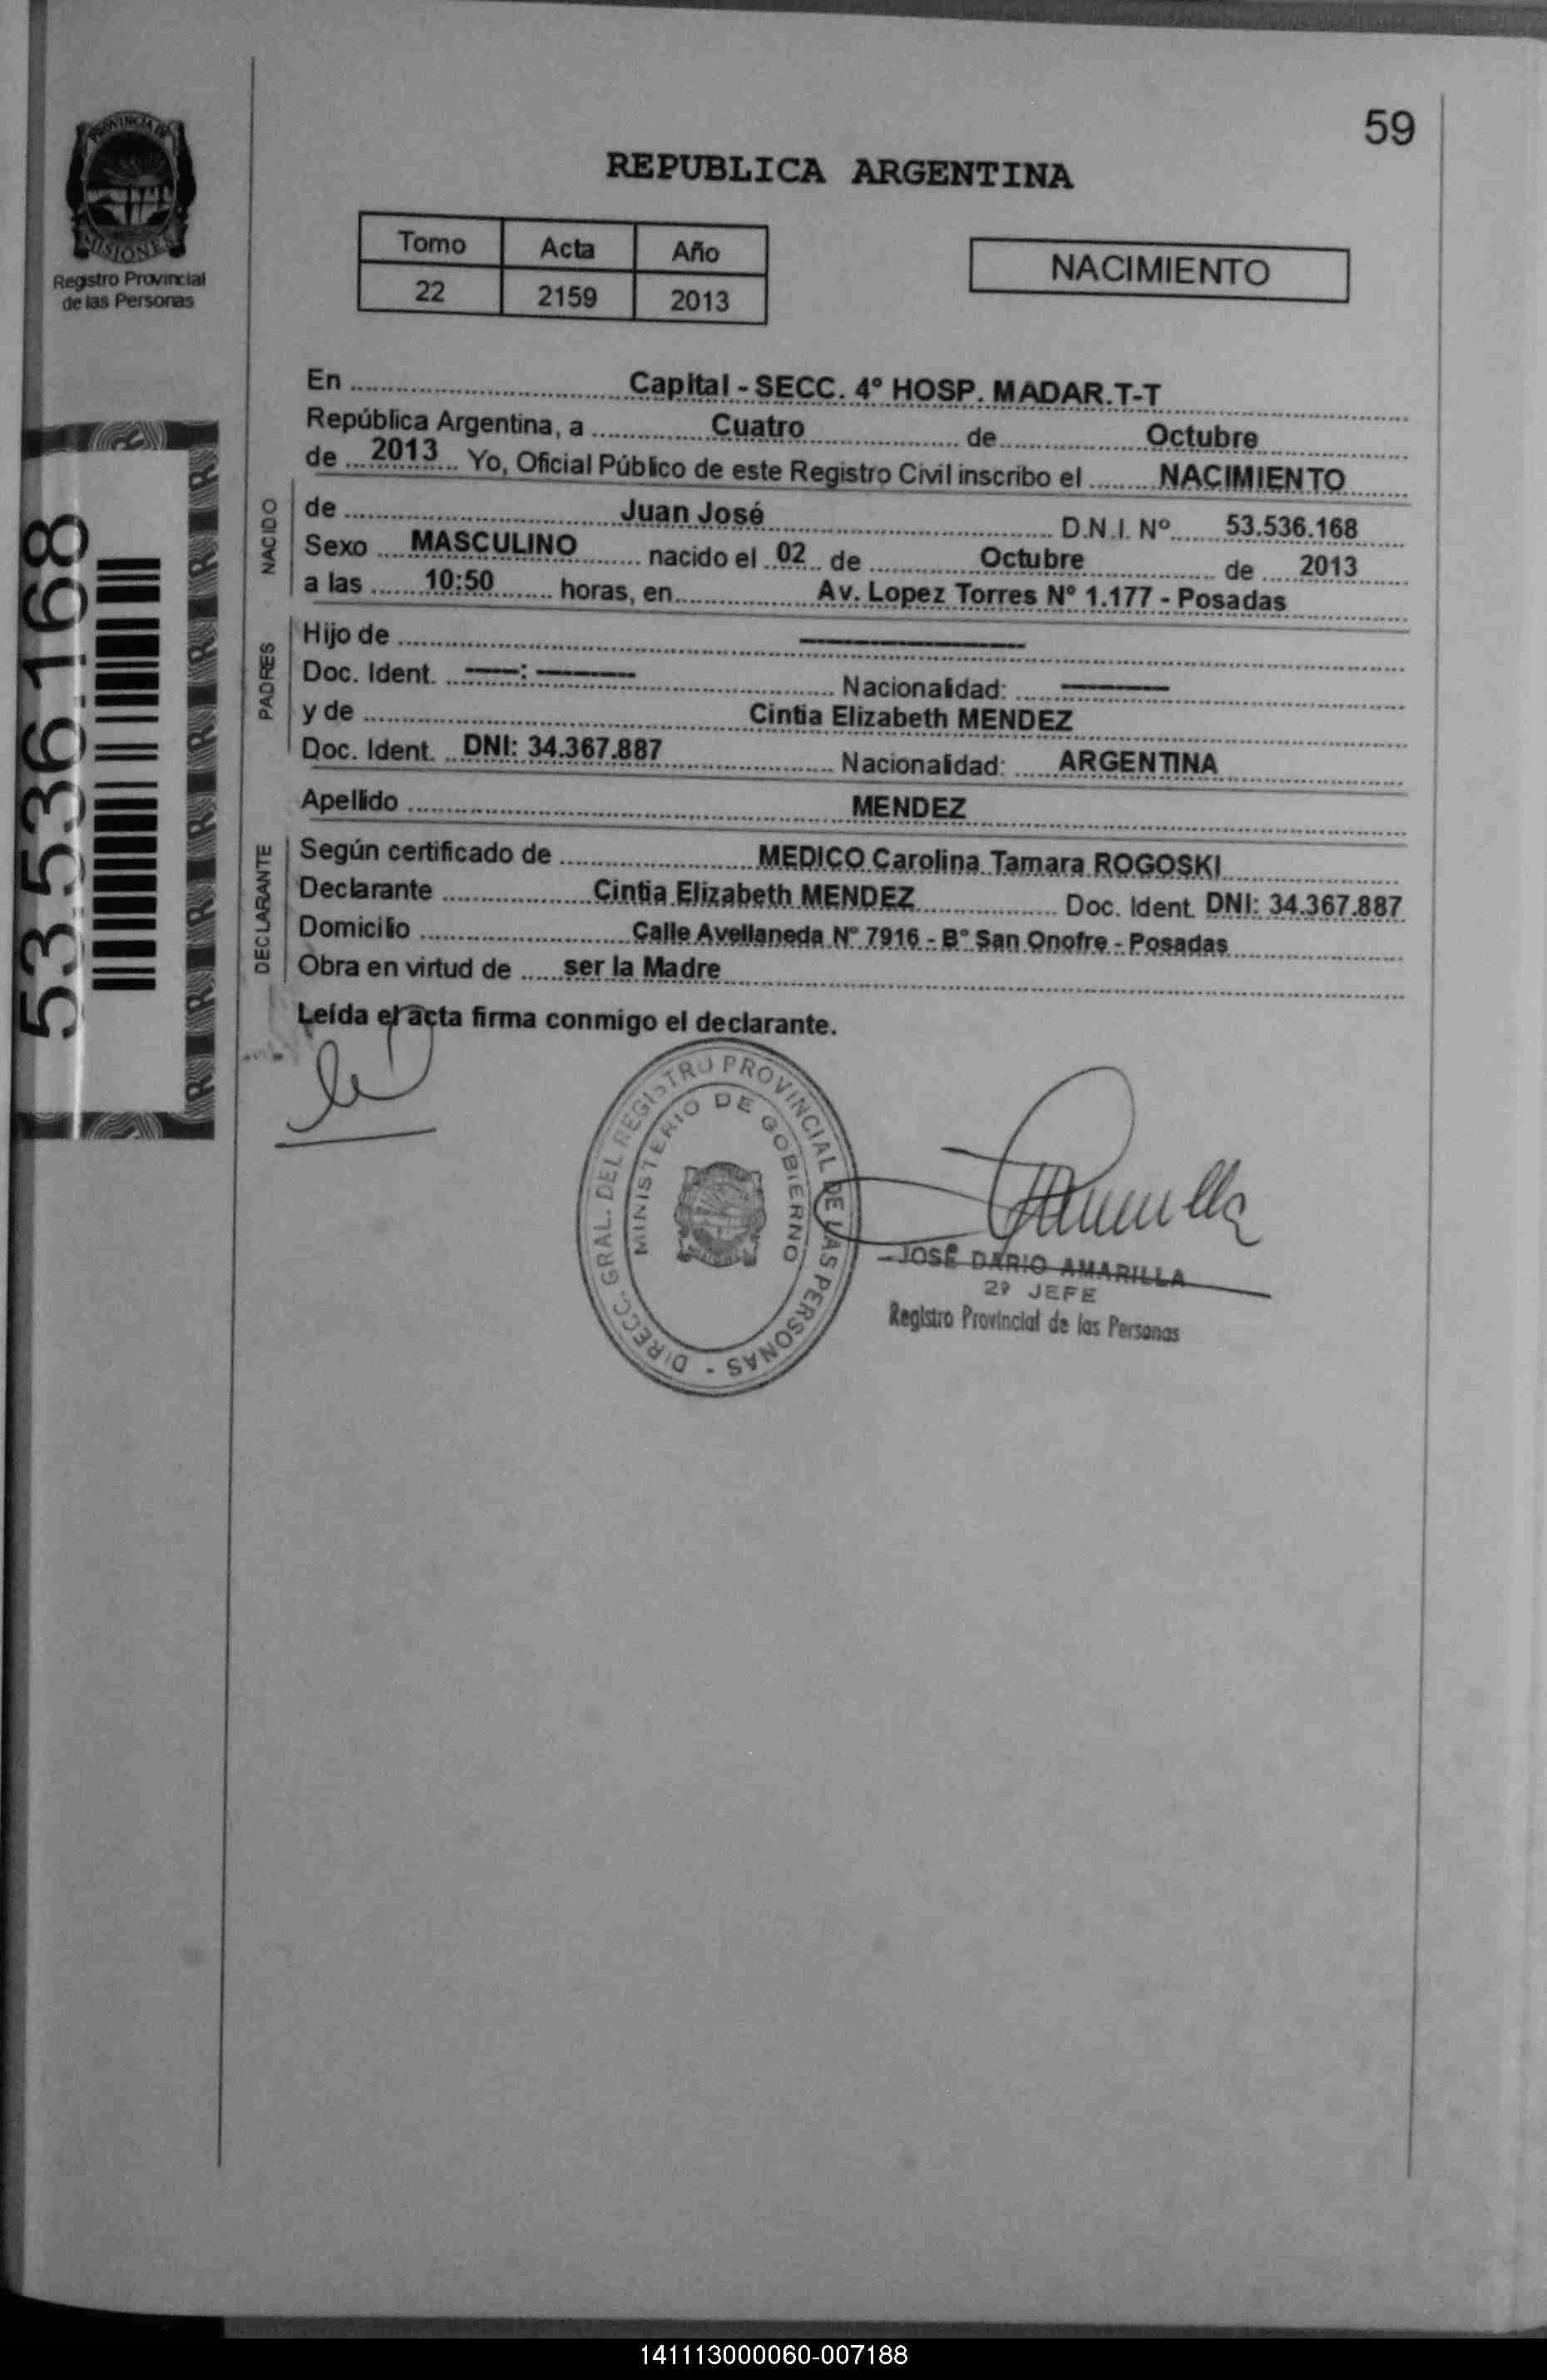 59
REPUBLICA ARGENTINA
PROVINCIA DE
MISIONES
Registro Provincial
de las Personas
Tomo Acta Año
22 2159 2013
NACIMIENTO
En Capital - SECC. 4º HOSP. MADAR.T-T
República Argentina, a Cuatro de Octubre
de 2013 Yo, Oficial Público de este Registro Civil inscribo el NACIMIENTO
NACIDO
de Juan José D.N.I. Nº 53.536.168
Sexo MASCULINO nacido el 02 de Octubre de 2013
a las 10:50 horas, en Av. Lopez Torres Nº 1.177 - Posadas
PADRES
Hijo de
Doc. Ident. : Nacionalidad:
y de Cintia Elizabeth MENDEZ
Doc. Ident. DNI: 34.367.887 Nacionalidad: ARGENTINA
Apellido MENDEZ
DECLARANTE
Según certificado de MEDICO Carolina Tamara ROGOSKI
Declarante Cintia Elizabeth MENDEZ Doc. Ident. DNI: 34.367.887
Domicilio Calle Avellaneda Nº 7916 - Bº San Onofre - Posadas
Obra en virtud de ser la Madre
Leída el acta firma conmigo el declarante.
53.536.168
DIRECC. GRAL. DEL REGISTRO PROVINCIAL DE LAS PERSONAS -
MINISTERIO DE GOBIERNO
JOSÉ DARIO AMARILLA
2º JEFE
Registro Provincial de las Personas
141113000060-007188